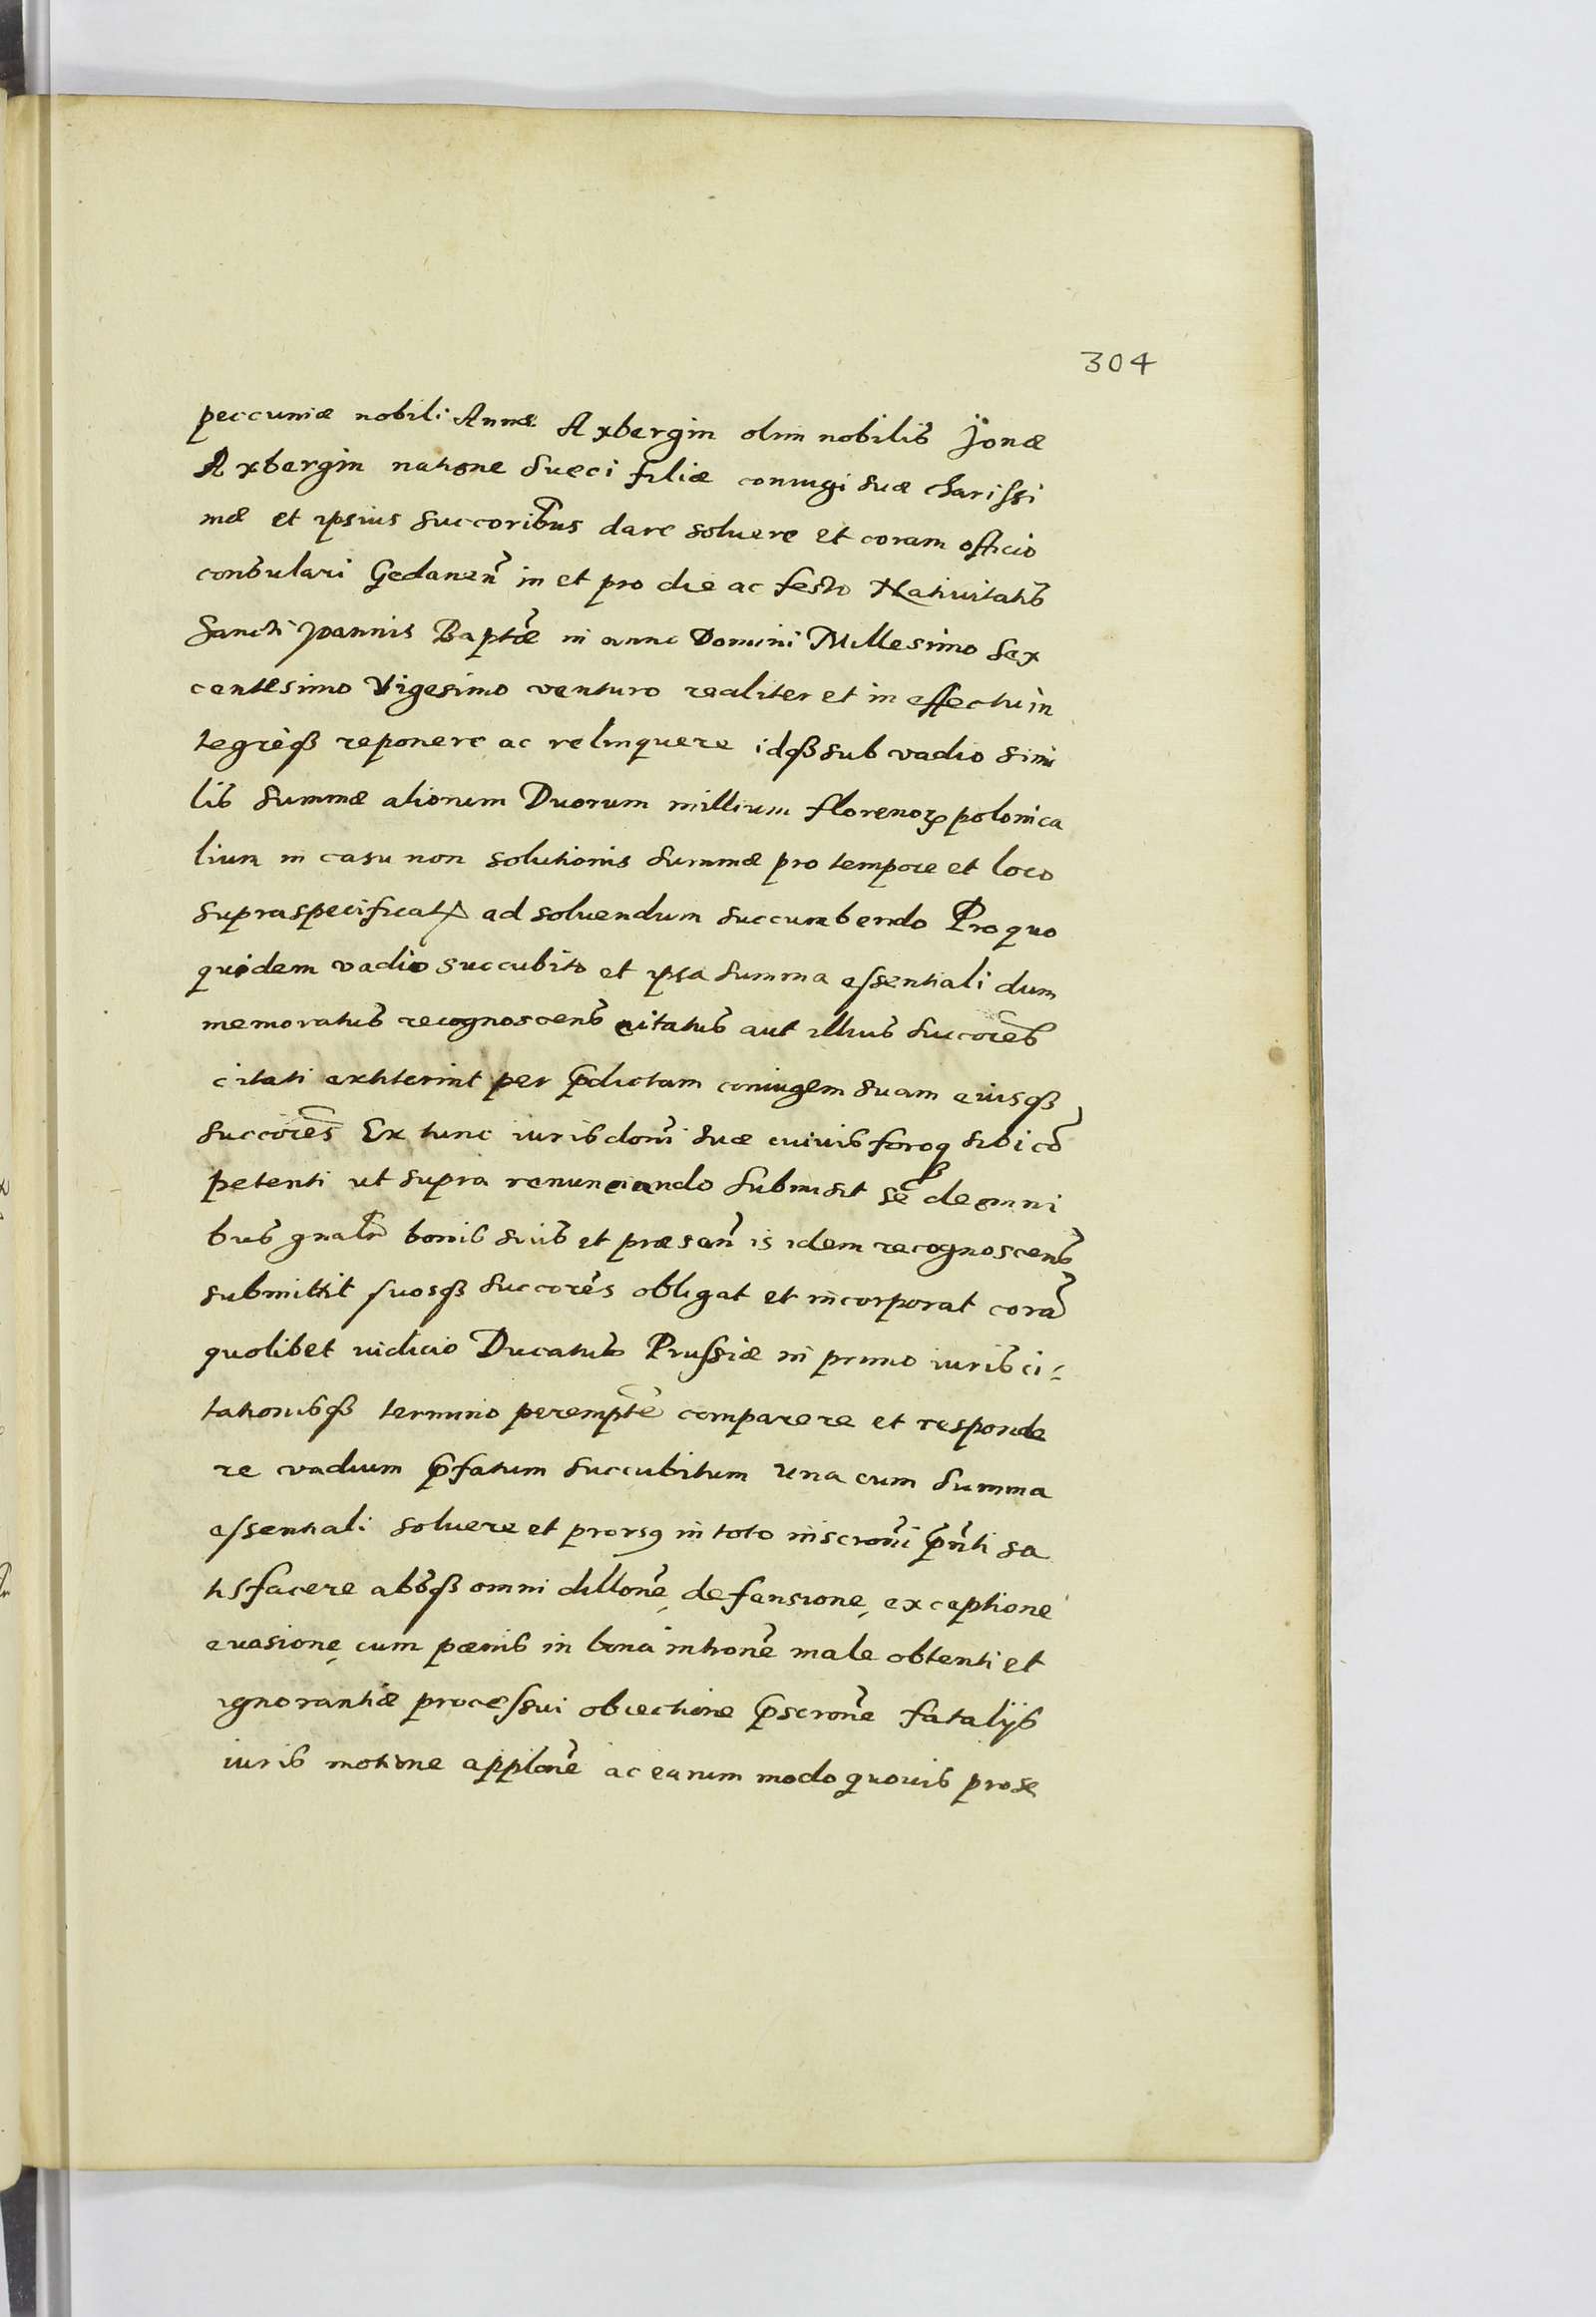 304
peccuniæ nobili Annæ Axbergin olim nobilis Jonæ
Axbergin natione Sueci filiæ coniugi suæ charissi
mæ et ipsius succoribus dare soluere et coram officio
consulari Gedanen in et pro die ac festo Natiuitatis
Sancti Joannis Baptæ in anno Domini Millesimo Sex
centesimo Vigesimo venturo realiter et in effectu in
tegreqȝ reponere ac relinquere idqȝ sub vadio simi
lis summæ aliorum Duorum millium florenorꝝ polonica
lium in casu non solutionis summæ pro tempore et loco
supraspecificatꝝ ad soluendum succumbendo Pro quo
quidem vadio succubito et ipsa summa essentiali dum
memoratus recognoscens citatus aut illius succores
citati extiterint per p̃dictam coniugem suam eiusqȝ
succores Ex tunc iurisdoni suæ cuiuis foroqȝ sibi cõ
petenti ut supra renunciando submisit se de omni
bus gnalr bonis suis et præsen is idem recognoscens
submittit suosqȝ succores obligat et incorporat corã
quolibet iudicio Ducatus Prussiæ in primo iuris ci-
tationisqȝ termino perempte comparere et responde
re vadium p̃fatum succubitum una cum summa
essentiali soluere et prorsꝰ in toto inscroni p̃nti sa
tisfacere absqȝ omni dillone, defensione, exceptione
euasione, cum pœnis in bina intione male obtenti et
ignorantiæ processui obiectione p̃scrone fatalijs
iuris motione applone ac earum modo quouis prose